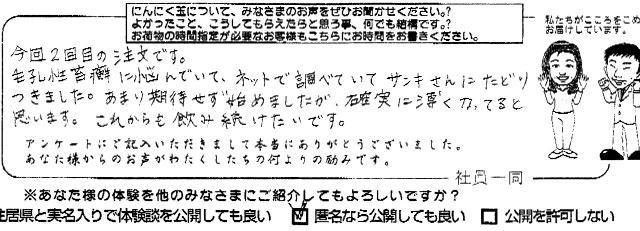 にんにく玉について、みなさまのお声をぜひお聞かせください。?
よかったこと、こうしてもらえたらと思う事、何でも結構です。?
お荷物の時間指定が必要なお客様もこちらにお時間をお書きください。
私たちがこころをこめ
お届けしています。
今回2回目の注文です。
に悩んでいて、ネットで調べていてサンキさんにたどり
つきました。あまり期待せず始めましたが、確実に薄くなってると
思います。これからも飲み続けたいです。
アンケートにご記入いただきまして本当にありがとうございました。
あなた様からのお声がわたくしたちの何よりの励みです。
社員一同
※あなた様の体験を他のみなさまにご紹介してもよろしいですか?
住居県と実名入りで体験談を公開しても良い 匿名なら公開しても良い 公開を許可しない